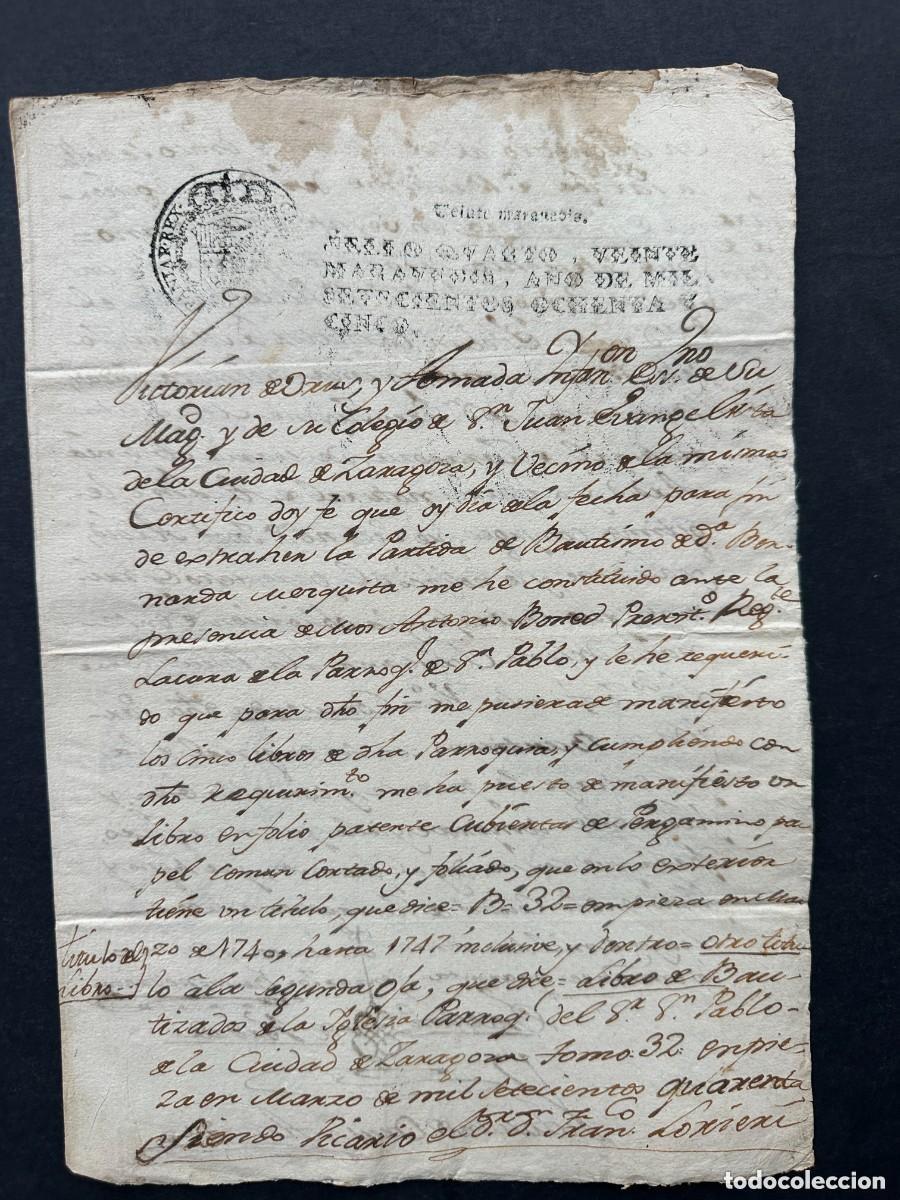 Veinte maravedis.
SELLO QVARTO, VEINTE
MARAVEDIS, AÑO DE MIL
SETECIENTOS OCHENTA Y
CINCO.
Victorian de y Infon Esno de Su
Magd. y de su Colegio de Sn. Juan Evangelista
de la Ciudad de Zaragoza, y Vecino de la misma
Certifico doy fe que oy dia de la fecha para fin
de extraher la Partida de Bautismo de Da. Ber-
narda Mezquita me he constituido ante la
presencia de Mos Antonio Boned Presvit.o Reg.te
La cura de la Parroq.l de Sn. Pablo, y le he requeri-
do que para dho fin me pusiera de manifiesto
los cinco libros de dha Parroquia, y cumpliendo con
dho requirim.to me ha puesto de manifiesto un
libro en folio patente Cubiertas de Pergamino pa-
pel comun cortado, y foliado, que en lo exterior
tiene un titulo, que dice = B = 32 = empieza en Mar-
titulo del libro
zo de 1740, hasta 1747 inclusive, y dentro = otro titu-
lo à la segunda oja, que dice = Libro de Bau-
tizados de la Iglesia Parroq.l del Sr. Sn. Pablo
de la Ciudad de Zaragoza tomo: 32: enpie-
za en Marzo de mil setecientos quarenta
siendo Vicario el Dr. Dn. Franco. Lorieri
todocoleccion
todocoleccion.net